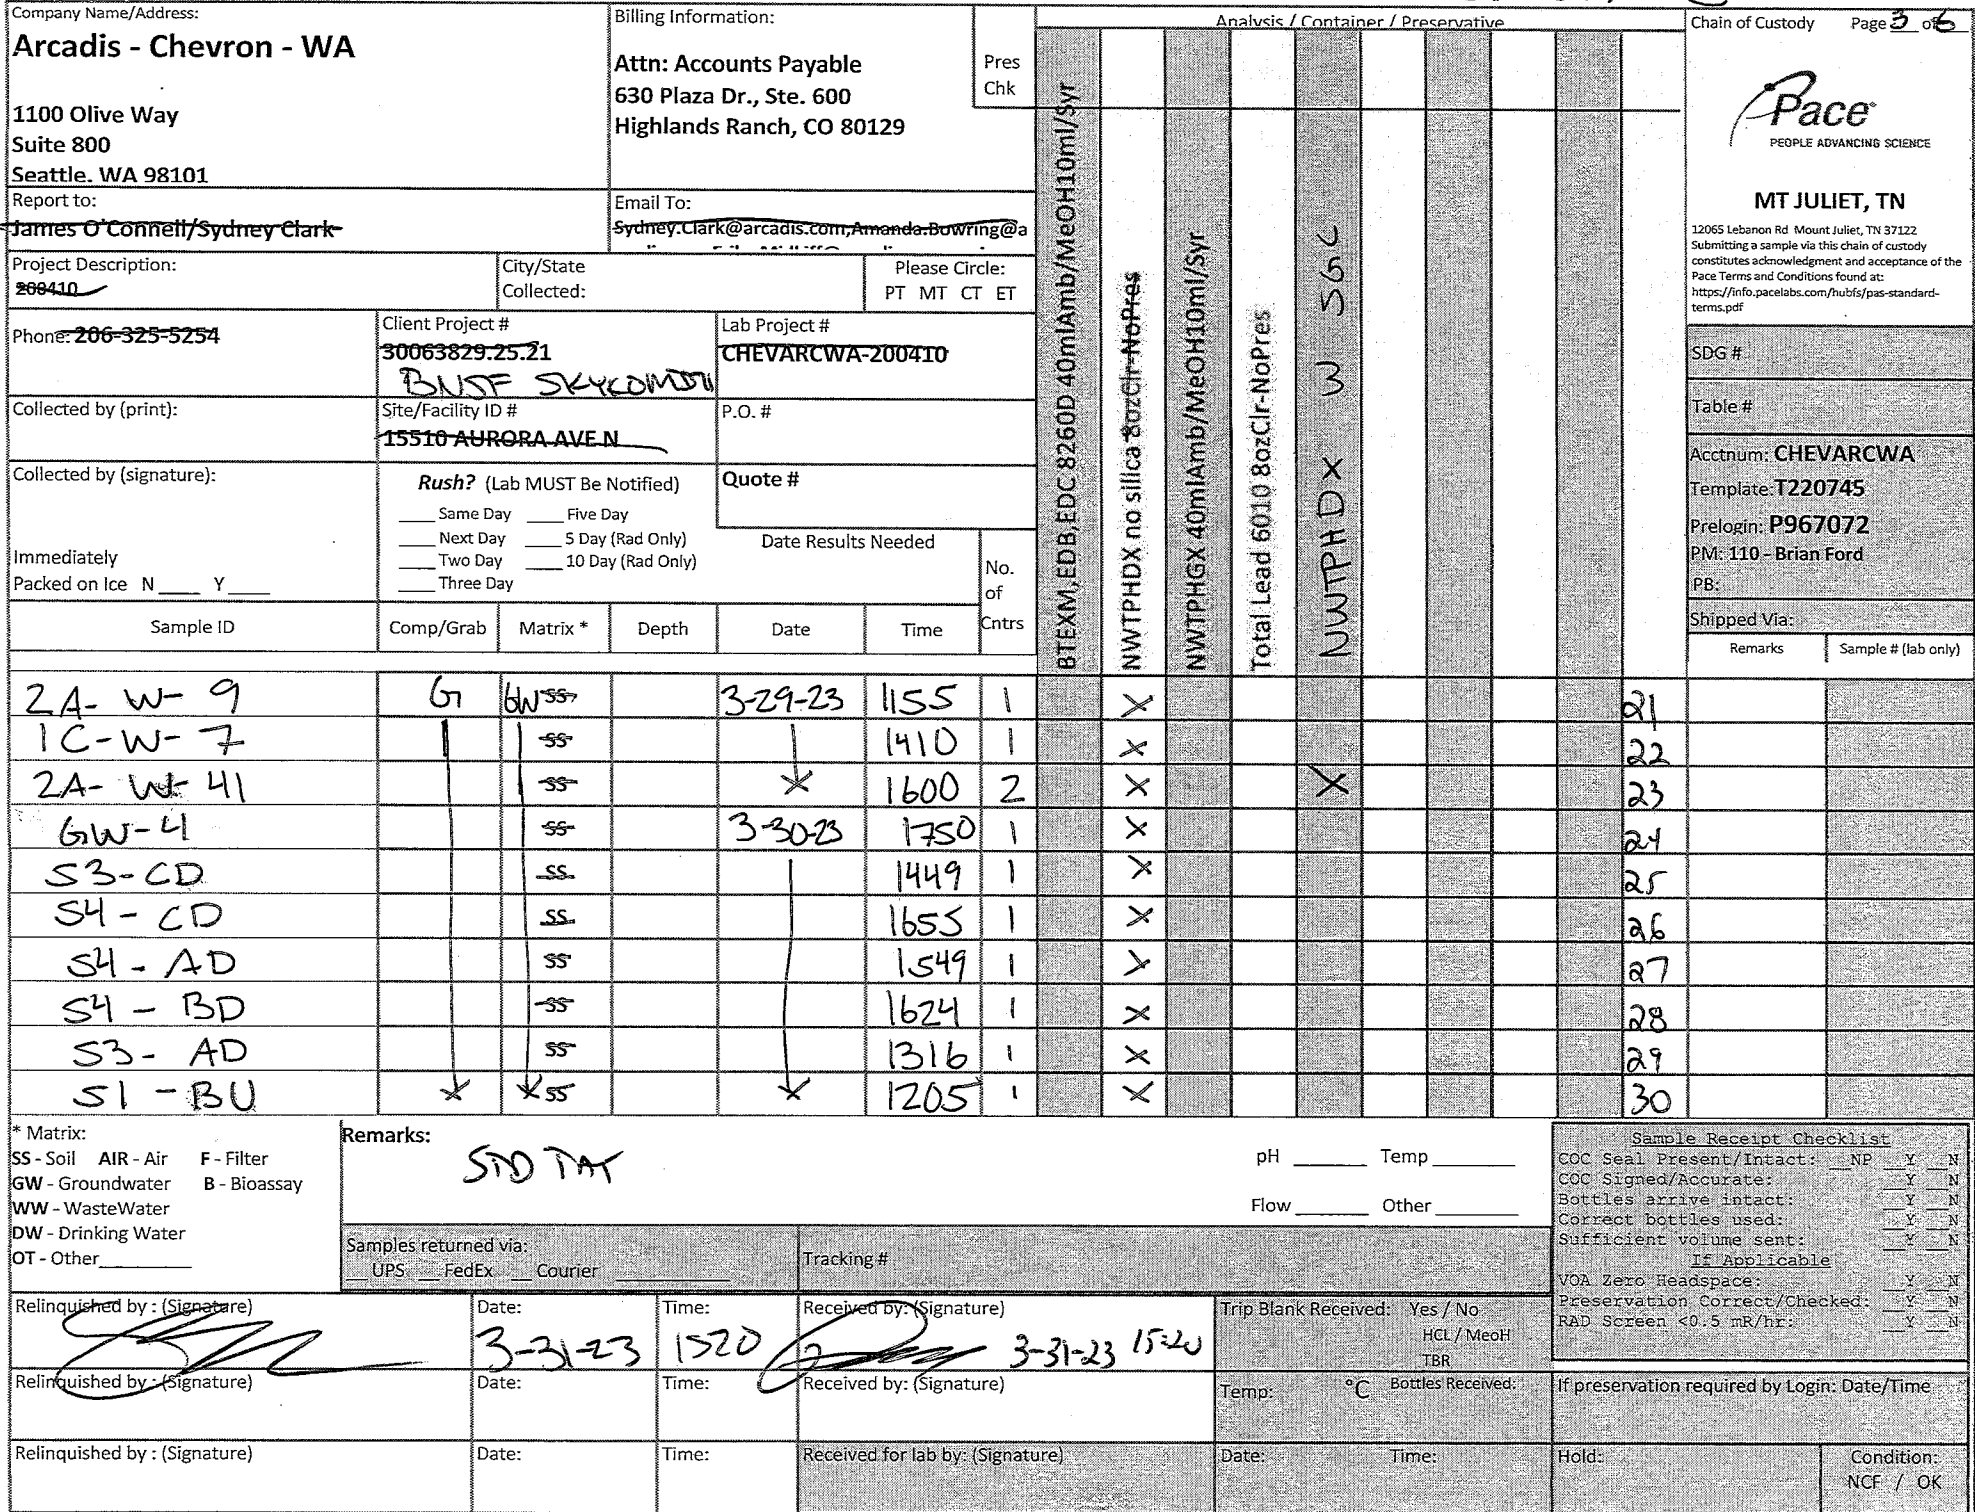 Company Name/Address:
Arcadis - Chevron - WA
1100 Olive Way
Suite 800
Seattle. WA 98101
Billing Information:
Attn: Accounts Payable
630 Plaza Dr., Ste. 600
Highlands Ranch, CO 80129
Pres
Chk
Analysis / Container / Preservative
Chain of Custody Page 3 of 6
Pace
PEOPLE ADVANCING SCIENCE
MT JULIET, TN
12065 Lebanon Rd Mount Juliet, TN 37122
Submitting a sample via this chain of custody
constitutes acknowledgment and acceptance of the
Pace Terms and Conditions found at:
https://info.pacelabs.com/hubfs/pas-standard-
terms.pdf
Report to:
James O'Connell/Sydney Clark
Email To:
Sydney.Clark@arcadis.com,Amanda.Bowring@a
Project Description:
200410
City/State
Collected:
Please Circle:
PT MT CT ET
Phone: 206-325-5254
Client Project #
30063829.25.21
BNSF SKYKOMISH
Lab Project #
CHEVARCWA-200410
Collected by (print):
Site/Facility ID #
15510 AURORA AVE N
P.O. #
Collected by (signature):
Rush? (Lab MUST Be Notified)
Same Day Five Day
Next Day 5 Day (Rad Only)
Two Day 10 Day (Rad Only)
Three Day
Quote #
Date Results Needed
Immediately
Packed on Ice N Y
No.
of
Cntrs
BTEXM,EDB,EDC 8260D 40mlAmb/MeOH10ml/Syr
NWTPHDX no silica 8ozClr-NoPres
NWTPHGX 40mlAmb/MeOH10ml/Syr
Total Lead 6010 8ozClr-NoPres
NWTPHDX 3 SGC
SDG #
Table #
Acctnum: CHEVARCWA
Template:T220745
Prelogin: P967072
PM: 110 - Brian Ford
PB:
Shipped Via:
Sample ID Comp/Grab Matrix * Depth Date Time Remarks Sample # (lab only)
2A- W- 9 G GW SS 3-29-23 1155 1 X 21
1C-W- 7 SS 1410 1 X 22
2A- W- 41 SS 1600 2 X X 23
GW-4 SS 3-30-23 1750 1 X 24
S3-CD SS 1449 1 X 25
S4 - CD SS 1655 1 X 26
S4 - AD SS 1549 1 X 27
S4 - BD SS 1624 1 X 28
S3- AD SS 1316 1 X 29
S1 - BU SS 1205 1 X 30
* Matrix:
SS - Soil AIR - Air F - Filter
GW - Groundwater B - Bioassay
WW - WasteWater
DW - Drinking Water
OT - Other
Remarks:
STD TAT
pH Temp
Flow Other
Samples returned via:
UPS FedEx Courier
Tracking #
Sample Receipt Checklist
COC Seal Present/Intact: NP Y N
COC Signed/Accurate: Y N
Bottles arrive intact: Y N
Correct bottles used: Y N
Sufficient volume sent: Y N
If Applicable
VOA Zero Headspace: Y N
Preservation Correct/Checked: Y N
RAD Screen <0.5 mR/hr: Y N
Relinquished by : (Signature)
Date:
3-31-23
Time:
1520
Received by: (Signature)
3-31-23 15:20
Trip Blank Received: Yes / No
HCL / MeoH
TBR
Relinquished by : (Signature)
Date:
Time:
Received by: (Signature)
Temp: °C Bottles Received:
If preservation required by Login: Date/Time
Relinquished by : (Signature)
Date:
Time:
Received for lab by: (Signature)
Date:
Time:
Hold:
Condition:
NCF / OK